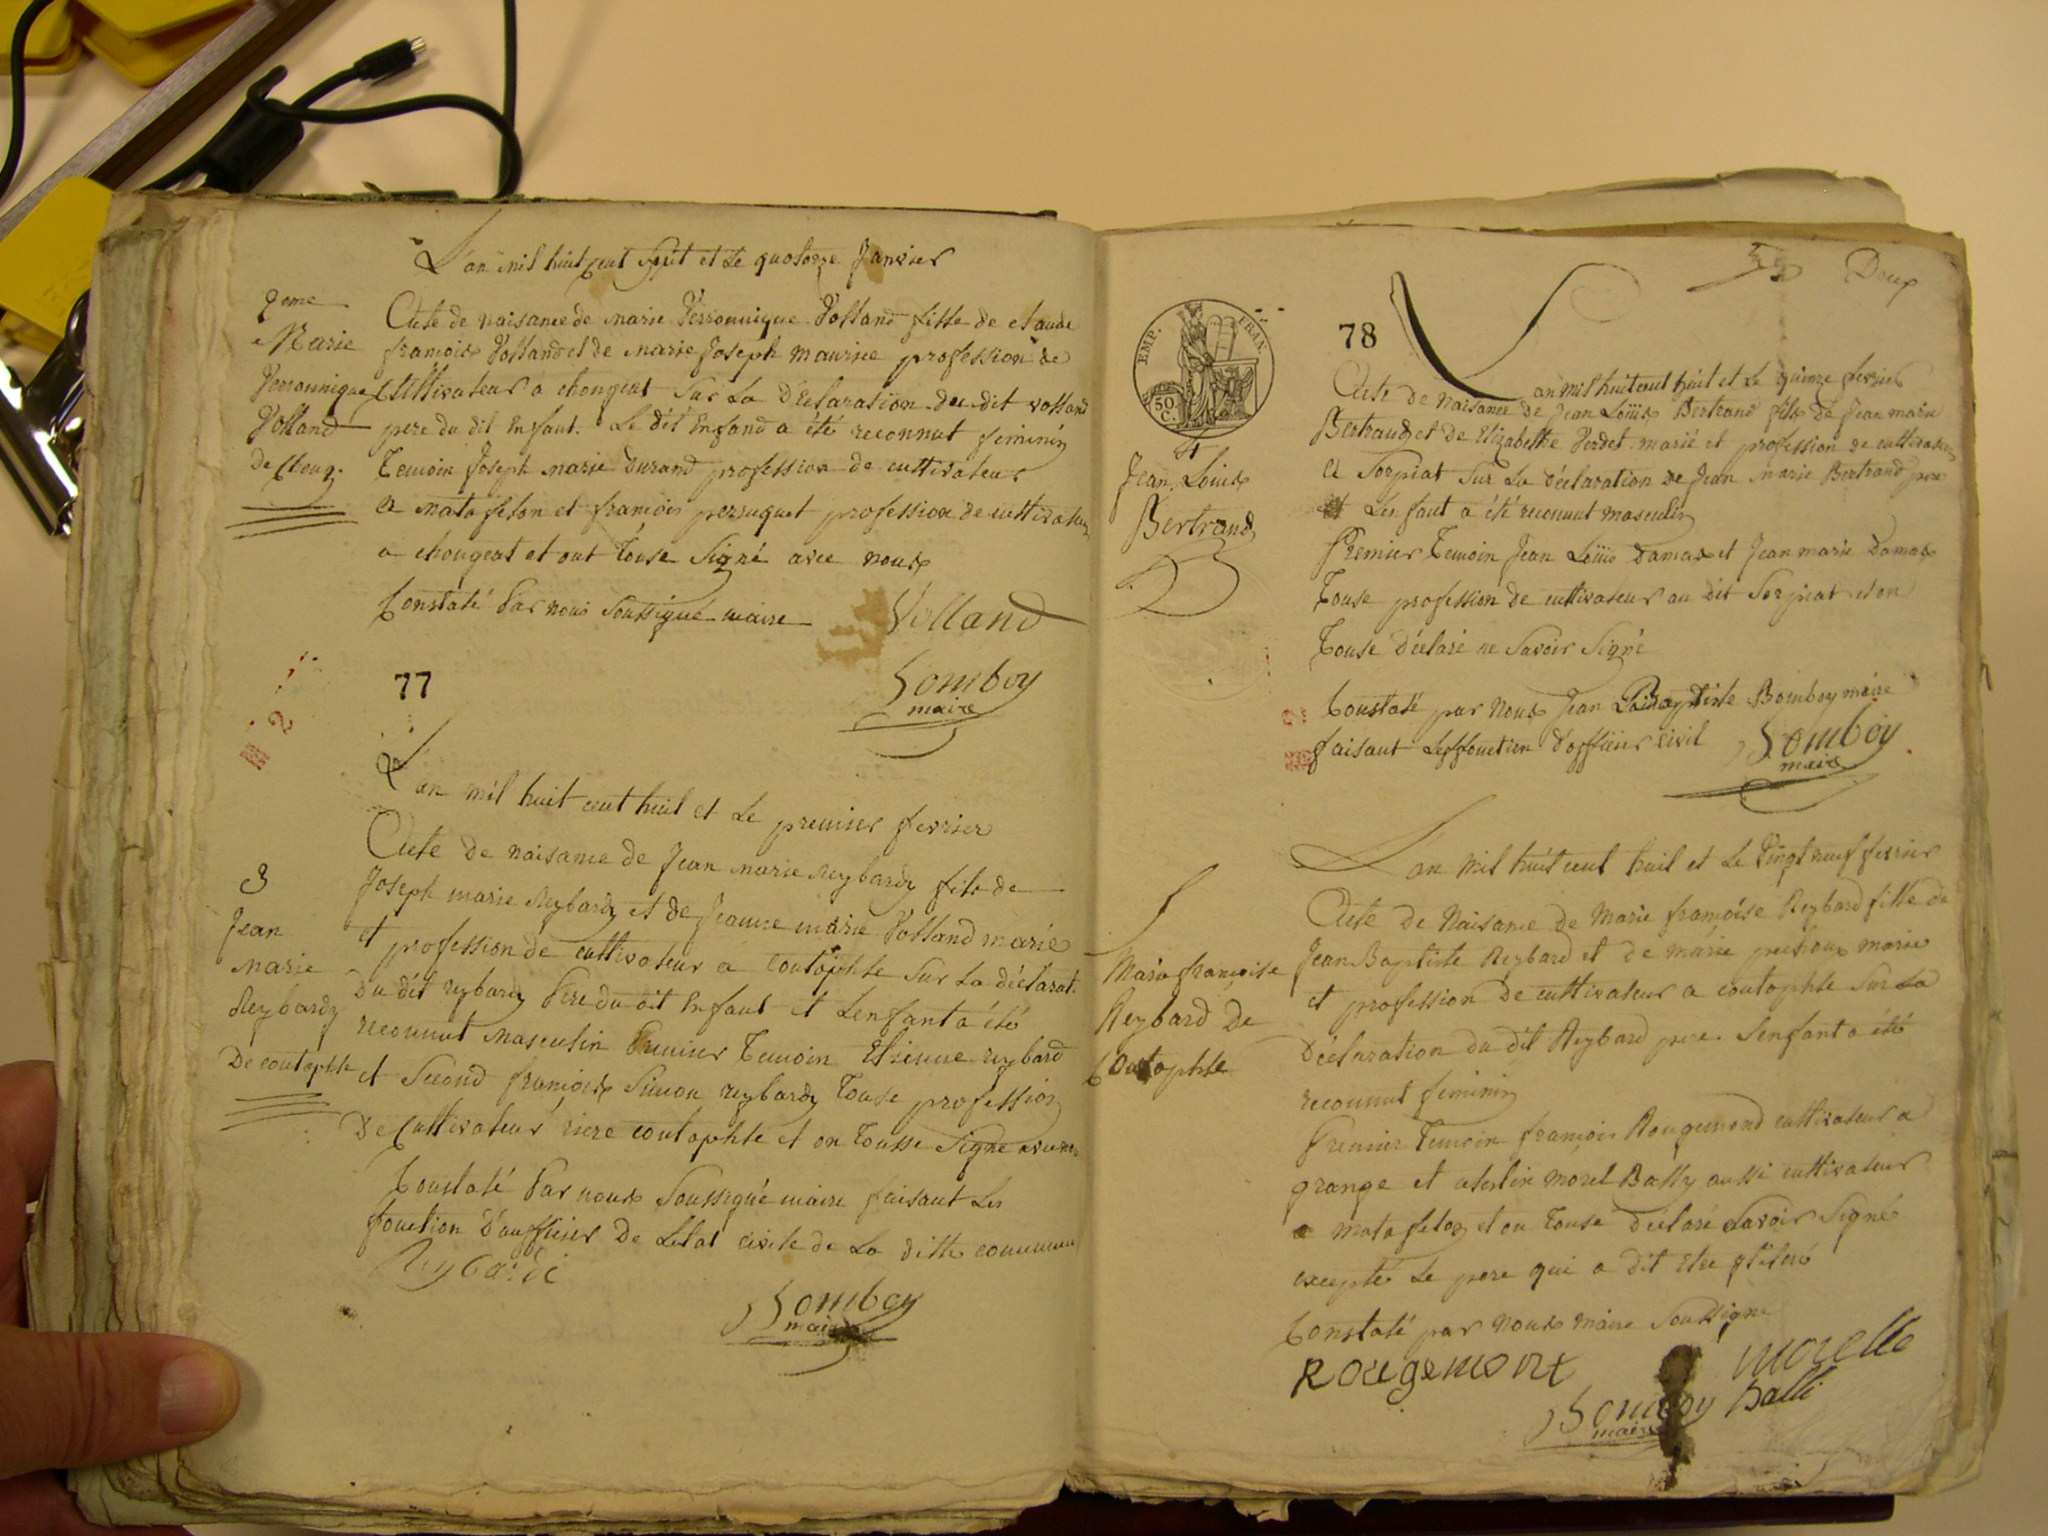 L'an mil huit cent huit et Le quatorze Janvier
2eme
Marie
Verronnique
Volland
de Chong.
Acte de naisance de marie Verronnique Volland fille de claude
francois Volland et de marie Joseph maurice profession de
Cultivateur a chongeat Sur La Déclaration du dit volland
pere du dit Enfant. Le dit Enfand a été reconnut feminin
Temoin Joseph marie Durand profession de cultivateur
a matafelon et francois perruquet profession de cultivateur
a chongeat et ont Touse Signé avec nous
Constaté Par nous Soussigné maire
Volland
Bomboy
maire
77
L'an mil huit cent huit et Le premier fevrier
3
Jean
Marie
Reybard
De coutophle
Acte de naisance de Jean marie Reybard fils de
Joseph marie Reybard et de Jeanne marie Volland marié
et profession de cultivateur a Coutophle Sur La déclarat.
Du dit reybard Pere du dit Enfant et Lenfant a été
reconnut Masculin Premier Temoin Etienne reybard
et Second francois Simon reybard Touse profession
De Cultivateur riere coutophle et on Tousse Signé avec nous
Constaté Par nous Soussigné maire faisant Les
fonction D'aufficier De Letat civile de La ditte commune
Reybardi
Bomboy
maire
Deux
78
EMP. FRAN.
50 C.
4
Jean Louis
Bertrand
L'an mil huit cent huit et Le quinze fevrier
Acte de Naisance de Jean Louis Bertrand fils de Jean marie
Bertrand et de Elizabethe Verdet marié et profession de cultivateur
a Sorpiat Sur La déclaration de Jean marie Bertrand pere
et Lenfant a été reconnut masculin
Premier Temoin Jean Louis Damas et Jean marie Damas
Touse profession de cultivateur au dit Sorpiat et on
Touse Déclaré ne Savoir Signé
Constaté par Nous Jean Baptiste Bomboy maire
faisant Les fonction D'officier civil
Bomboy
maire
L'an mil huit cent huit et Le Vingt neuf fevrier
Marie françoise
Reybard De
Coutophle
Acte de Naisance de Marie françoise Reybard fille de
Jean Baptiste Reybard et de marie marié
et profession De cultivateur a coutophle Sur La
Déclaration du dit Reybard pere. Lenfant a été
reconnut feminin
Premier Temoin francois Rougemond cultivateur a
grange et morel Bally aussi cultivateur
a matafelon et on Touse déclaré Savoir Signé
excepté Le pere qui a dit Etre
Constaté par Nous Maire Soussigné
Rougemont
morelle
Balli
Bomboy
maire